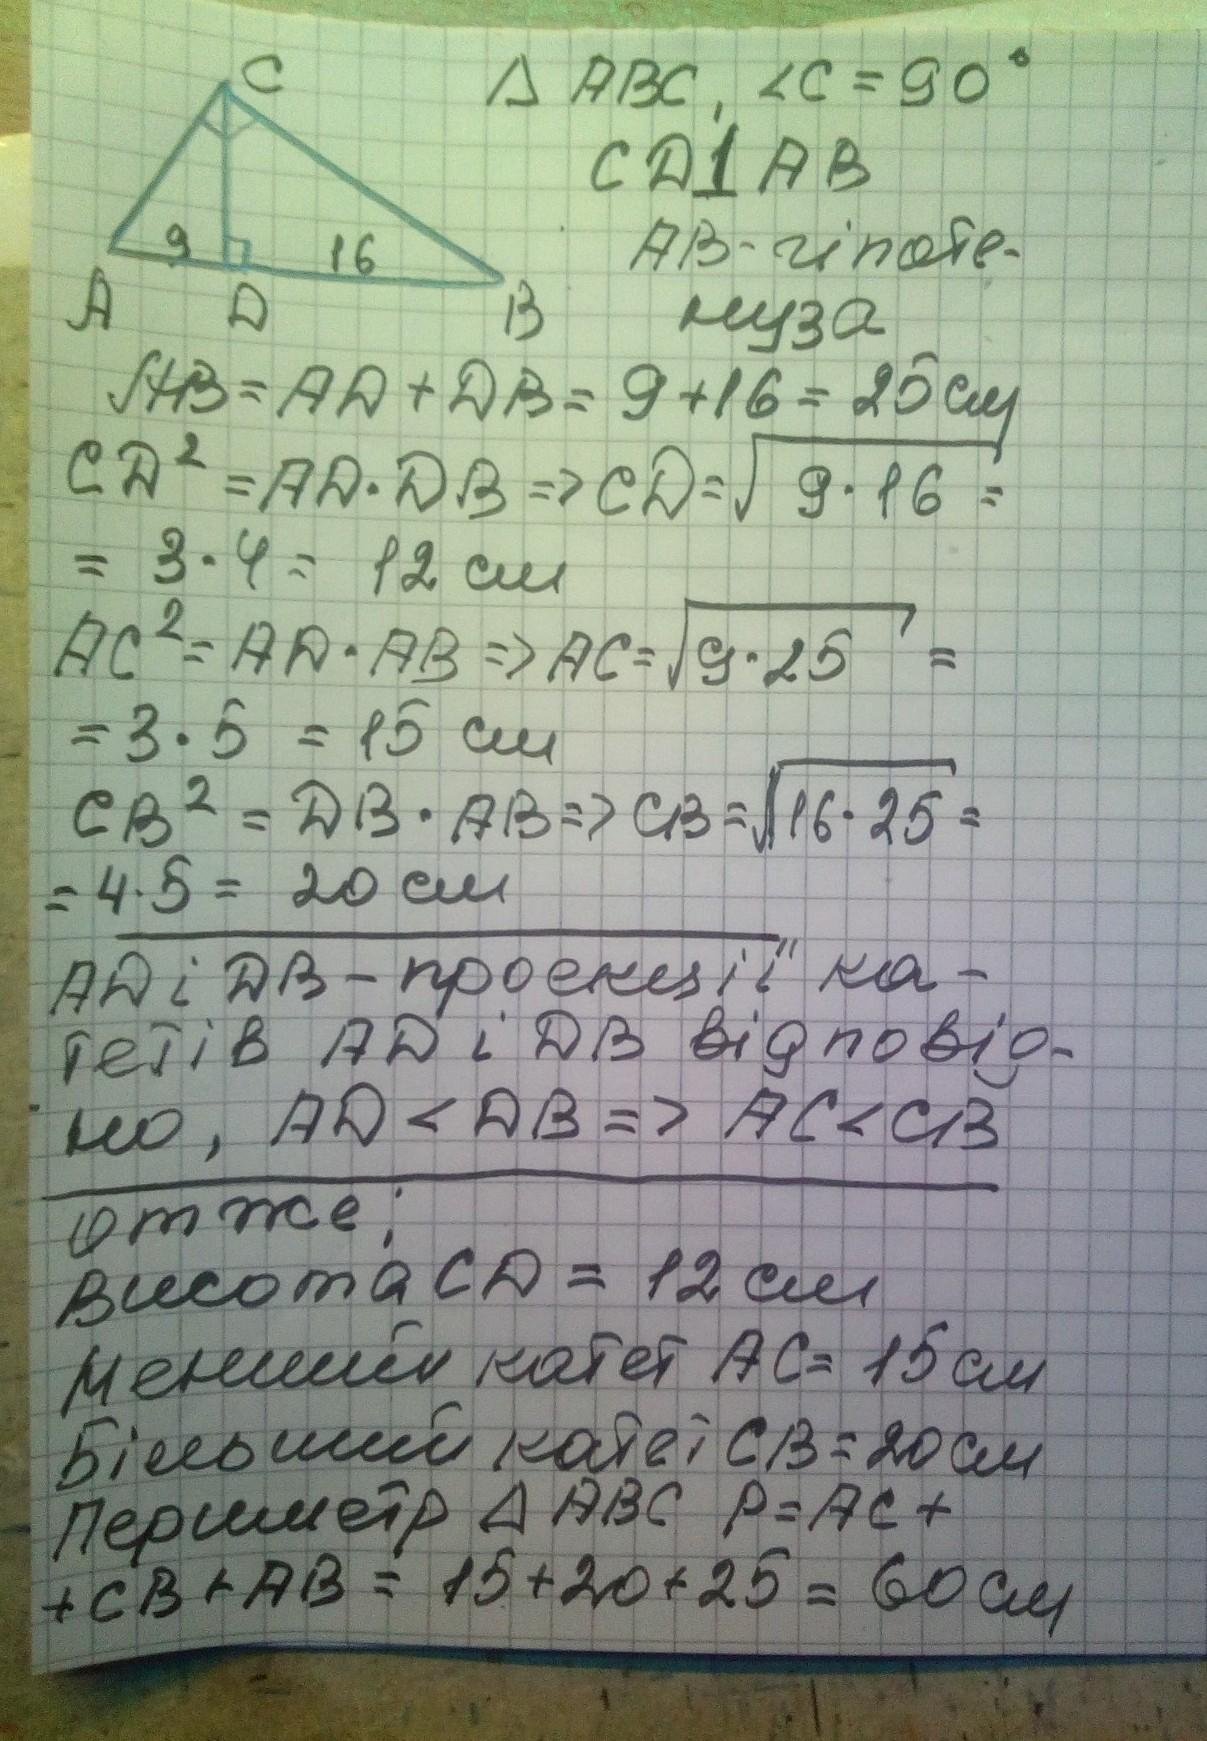 C
Δ ABC, <C = 90°
CD⊥AB
9
16
AB - гіпоте-
A D B
нуза
AB = AD + DB = 9 + 16 = 25 см
CD² = AD · DB => CD = √9 · 16 =
= 3 · 4 = 12 см
AC² = AD · AB => AC = √9 · 25 =
= 3 · 5 = 15 см
CB² = DB · AB => CB = √16 · 25 =
= 4 · 5 = 20 см
AD і DB - проекції ка-
тетів AD і DB відповід-
но, AD < DB => AC < CB
отже;
Висота CD = 12 см
Менший катет AC = 15 см
Більший катет CB = 20 см
Периметр Δ ABC P = AC +
+ CB + AB = 15 + 20 + 25 = 60 см